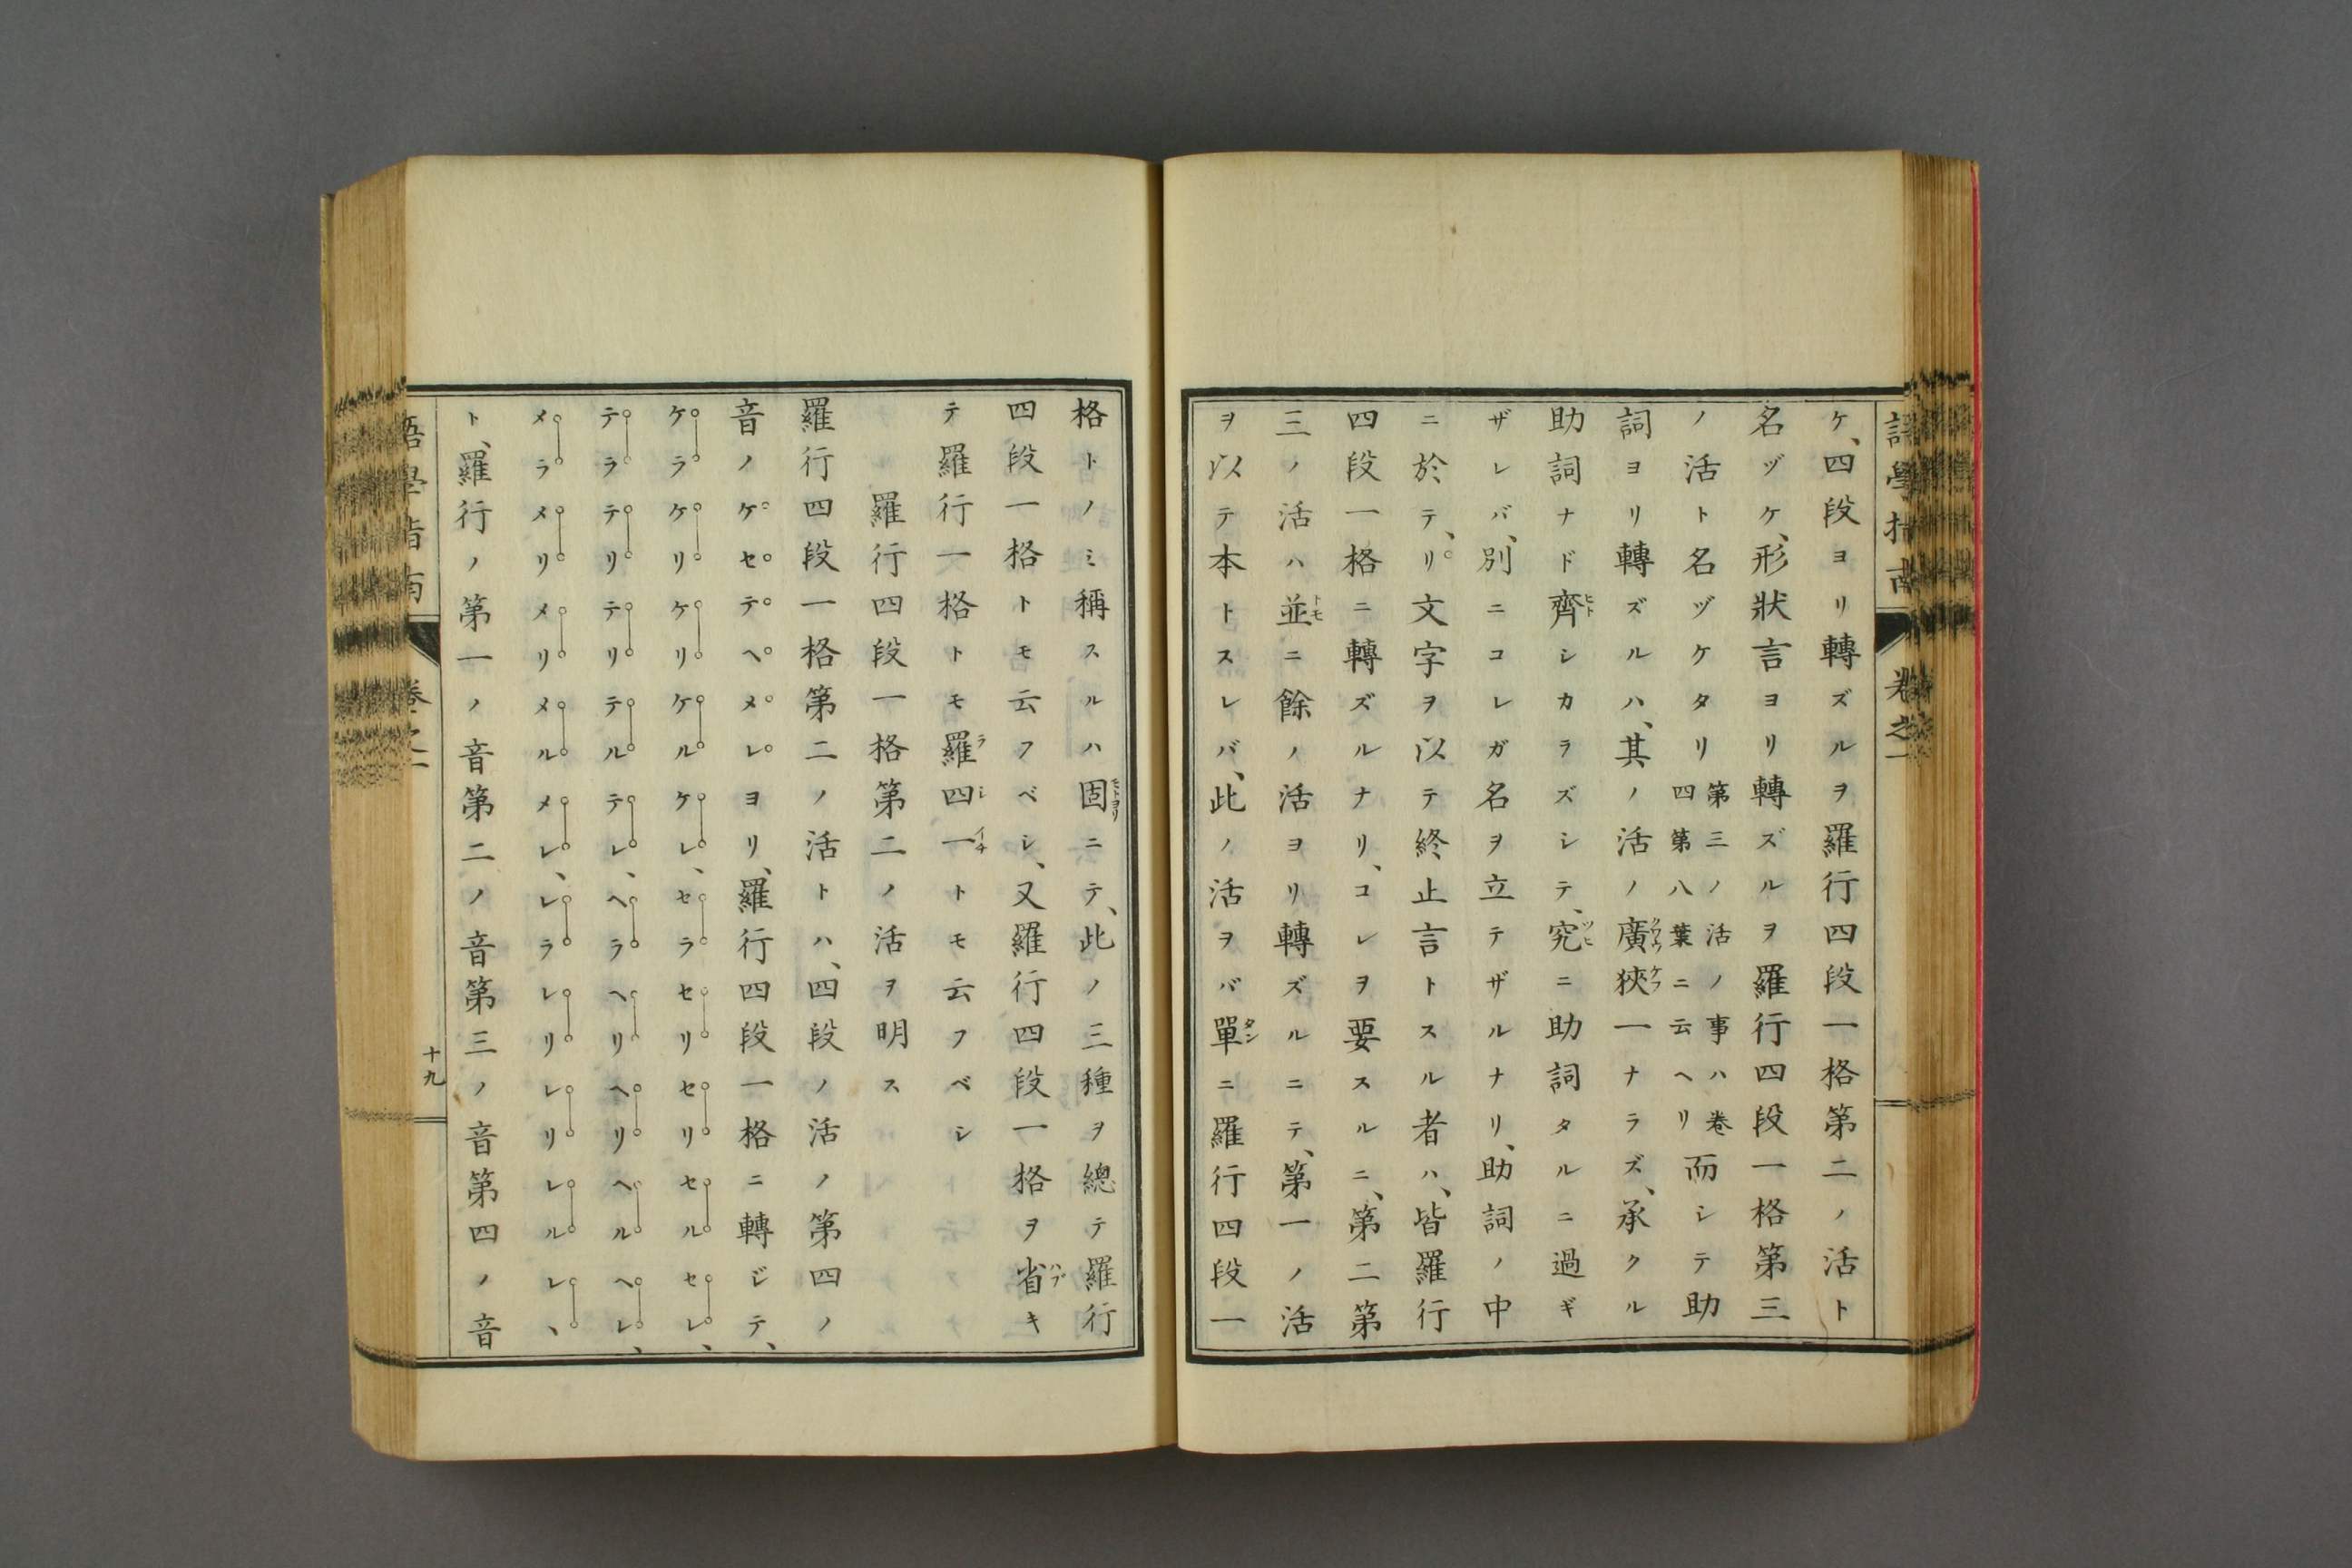 ケ、四段ヨリ轉ズルヲ羅行四段一格第二ノ活ト
名ヅケ、形狀言ヨリ轉ズルヲ羅行四段一格第三
ノ活ト名ヅケタリ第三ノ活ノ事ハ卷四第八葉ニ云ヘリ而シテ助
詞ヨリ轉ズルハ、其ノ活ノ廣狹一ナラズ、承クル
助詞ナド齊シカラズシテ、究ニ助詞タルニ過ギ
ザレバ、別ニコレガ名ヲ立テザルナリ、助詞ノ中
ニ於テ、リ文字ヲ以テ終止言トスル者ハ、皆羅行
四段一格ニ轉ズルナリ、コレヲ要スルニ、第二第
三ノ活ハ並ニ餘ノ活ヨリ轉ズルニテ、第一ノ活
ヲ以テ本トスレバ、此ノ活ヲバ單ニ羅行四段一
格トノミ稱スルハ固ニテ、此ノ三種ヲ總テ羅行
四段一格トモ云フベシ、又羅行四段一格ヲ省キ
テ羅行一格トモ羅四一トモ云フベシ
羅行四段一格第二ノ活ヲ明ス
羅行四段一格第二ノ活トハ、四段ノ活ノ第四ノ
音ノケセテヘメレヨリ、羅行四段一格ニ轉ジテ、
ケラケリケリケルケレ、セラセリセリセルセレ、
テラテリテリテルテレ、ヘラヘリヘリヘルヘレ、
メラメリメリメルメレ、レラレリレリレルレレ、
ト、羅行ノ第一ノ音第二ノ音第三ノ音第四ノ音
十九